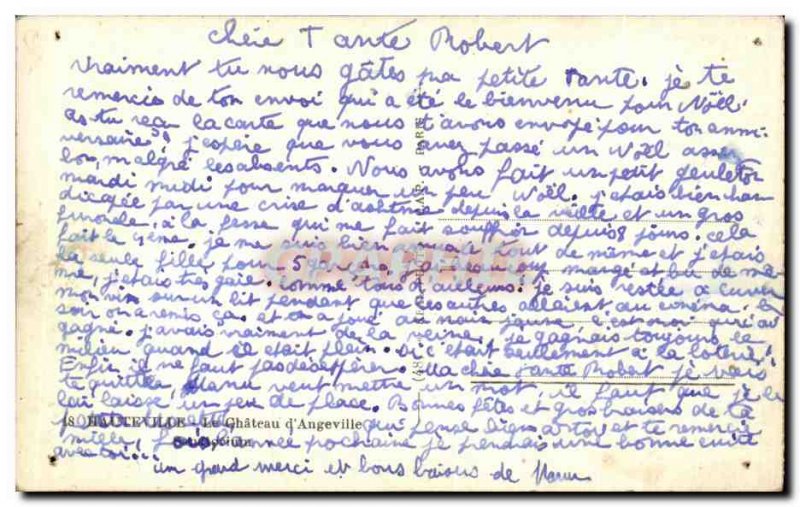 chère Tante Robert
Vraiment tu nous gâtes ma petite Tante. je te
remercie de ton envoi qui a été le bienvenu pour Noël.
As tu reçu la carte que nous t'avons envoyé pour ton anni-
versaire? j'espère que vous avez passé un Noël assez
bon, malgré les absents. Nous avons fait un petit gueuleton
mardi midi pour marquer un peu Noël. j'étais bien han
dicapée par une crise d'asthme depuis la veille et un gros
furoncle à la fesse qui me fait souffrir depuis 8 jours. cela
fait le ème. je me suis bien tout de même et j'étais
la seule fille pour 5 mangé et bu de mê-
me, j'étais très gaie. comme tous d'ailleurs. je suis restée à cuver
mon vin sur un lit pendant que les autres allaient au cinéma. Le
soir on a remis ça. et on a joué au nain jaune qui ai
gagné. j'avais vraiment de la veine. je gagnais toujours le
milieu quand il était plein. Si c'était seulement à la loterie!
Enfin il ne faut pas désespérer. Ma chère Tante Robert je vais
te quitter, Manu veut mettre un mot, il faut que je
lui laisse un peu de place. Bonnes fêtes et gros baisers de ta
petite qui pense bien à toi et te remercie
mille fois. L'année prochaine je prendrais une bonne cuite
avec toi...
un grand merci et bons baisers de Manu
18 HAUTEVILLE - Le Château d'Angeville